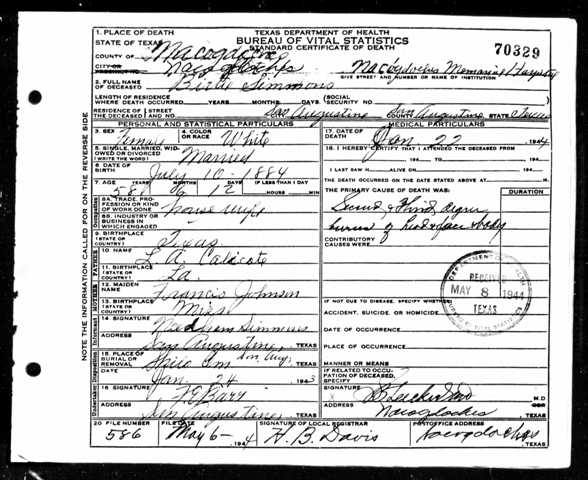 1. PLACE OF DEATH
STATE OF TEXAS
TEXAS DEPARTMENT OF HEALTH
BUREAU OF VITAL STATISTICS
STANDARD CERTIFICATE OF DEATH
70329
COUNTY OF Nacogdoches
CITY OR Nacogdoches Nacogdoches Memorial Hospital
GIVE STREET AND NUMBER OR NAME OF INSTITUTION
2. FULL NAME OF DECEASED Birdie Simmons
LENGTH OF RESIDENCE WHERE DEATH OCCURRED YEARS MONTHS DAYS SOCIAL SECURITY NO.
RESIDENCE OF THE DECEASED STREET AND NO. San Augustine San Augustine STATE Texas
PERSONAL AND STATISTICAL PARTICULARS
MEDICAL PARTICULARS
3. SEX Female 4. COLOR OR RACE White
17. DATE OF DEATH Jan 22 1944
5. SINGLE, MARRIED, WIDOWED OR DIVORCED (WRITE THE WORD) Married
18. I HEREBY CERTIFY THAT I ATTENDED THE DECEASED FROM
194 TO 194
6. DATE OF BIRTH July 10 - 1884
I LAST SAW H ALIVE ON 194
7. AGE YEARS MONTHS DAYS IF LESS THAN 1 DAY
58 6 12 HOURS MIN
THE DEATH OCCURRED ON THE DATE STATED ABOVE AT M.
8A. TRADE, PROFESSION OR KIND OF WORK DONE House wife
THE PRIMARY CAUSE OF DEATH WAS: DURATION
Second & third degree
burns of head face & body
8B. INDUSTRY OR BUSINESS IN WHICH ENGAGED
CONTRIBUTORY CAUSES WERE:
9. BIRTHPLACE (STATE OR COUNTRY) Texas
10. NAME L. A. Calicote
11. BIRTHPLACE (STATE OR COUNTRY) La.
RECEIVED
MAY 8 1944
TEXAS
12. MAIDEN NAME Francis Johnson
13. BIRTHPLACE (STATE OR COUNTRY) Miss
IF NOT DUE TO DISEASE, SPECIFY WHETHER:
ACCIDENT, SUICIDE, OR HOMICIDE
14. SIGNATURE Needham Simmons
DATE OF OCCURRENCE
ADDRESS San Augustine, TEXAS
PLACE OF OCCURRENCE
15. PLACE OF BURIAL OR REMOVAL Shilo Cem San Aug. TEXAS
MANNER OR MEANS
DATE Jan. 24 1943
IF RELATED TO OCCUPATION OF DECEASED, SPECIFY
16. SIGNATURE
SIGNATURE M.D.
ADDRESS San Augustine TEXAS
ADDRESS Nacogdoches TEXAS
20. FILE NUMBER FILE DATE SIGNATURE OF LOCAL REGISTRAR POSTOFFICE ADDRESS
586 May 6- 1944 H. B. Davis Nacogdoches TEXAS
NOTE THE INFORMATION CALLED FOR ON THE REVERSE SIDE
Occupation
FATHER
MOTHER
Informant
Disposition
Undertaker